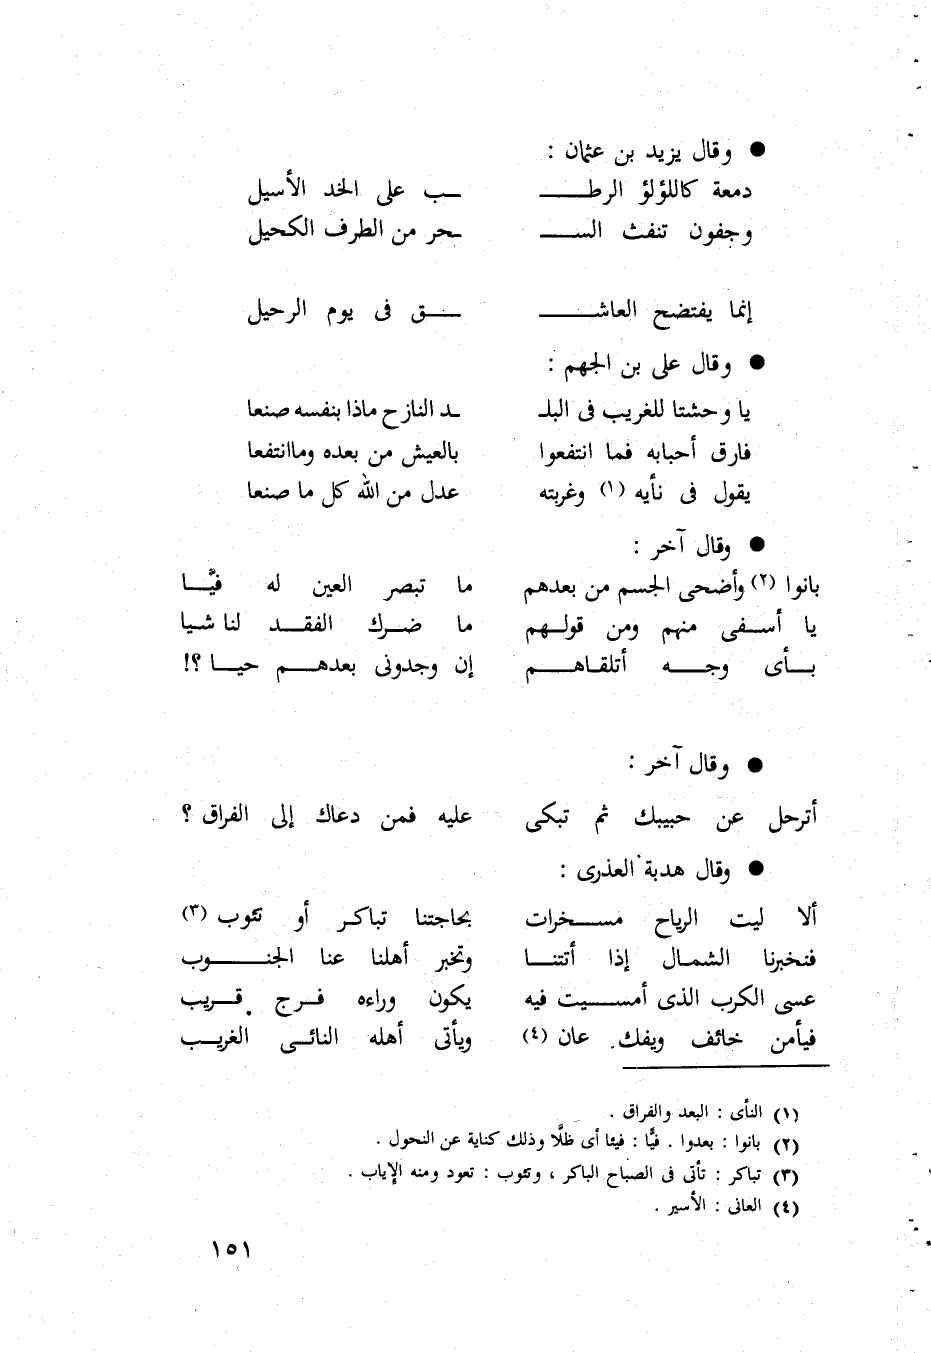 ● وقال يزيد بن عثمان :
دمعة كاللؤلؤ الرطـــ ـــب على الخد الأسيل
وجفون تنفث الســـ ـحر من الطرف الكحيل
إنما يفتضح العاشـــ ـــق فى يوم الرحيل
● وقال على بن الجهم :
يا وحشتا للغريب فى البلـ ـد النازح ماذا بنفسه صنعا
فارق أحبابه فما انتفعوا بالعيش من بعده وماانتفعا
يقول فى نأيه (١) وغربته عدل من الله كل ما صنعا
● وقال آخر :
بانوا (٢) وأضحى الجسم من بعدهم ما تبصر العين له فيَّــا
يا أســفى منهم ومن قولــهم ما ضــرك الفقــد لنا شـيا
بــأى وجــــه أتلقـاهـــم إن وجدونى بعدهــم حيــا ؟!
● وقال آخر :
أترحل عن حبيبك ثم تبكى عليه فمن دعاك إلى الفراق ؟
● وقال هدبة العذرى :
ألا ليت الرياح مســخرات بحاجتنا تباكـر أو تئوب (٣)
فنخبرنا الشمـال إذا أتتنــا وتخبر أهلنا عنا الجنــــوب
عسى الكرب الذى أمســـيت فيه يكون وراءه فــرج قــريب
فيأمن خائف ويفك عان (٤) ويأتى أهله النائــى الغريــب
(١) النأى : البعد والفراق .
(٢) بانوا : بعدوا . فيًّا : فيئا أى ظلًّا وذلك كناية عن النحول .
(٣) تباكر : تأتى فى الصباح الباكر ، وتئوب : تعود ومنه الإياب .
(٤) العانى : الأسير .
١٥١